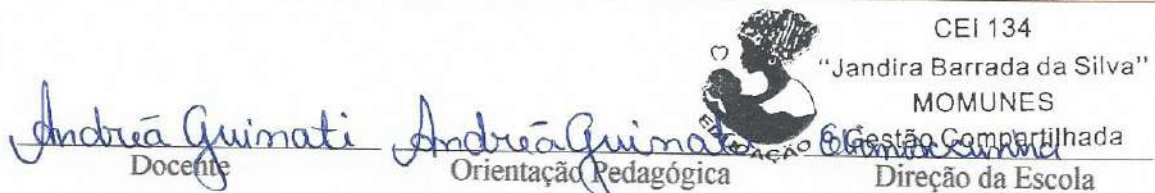 CEI 134
"Jandira Barrada da Silva"
MOMUNES
Gestão Compartilhada
EDUCAÇÃO
Andréa Guimati Andréa Guimati
Docente Orientação Pedagógica Direção da Escola